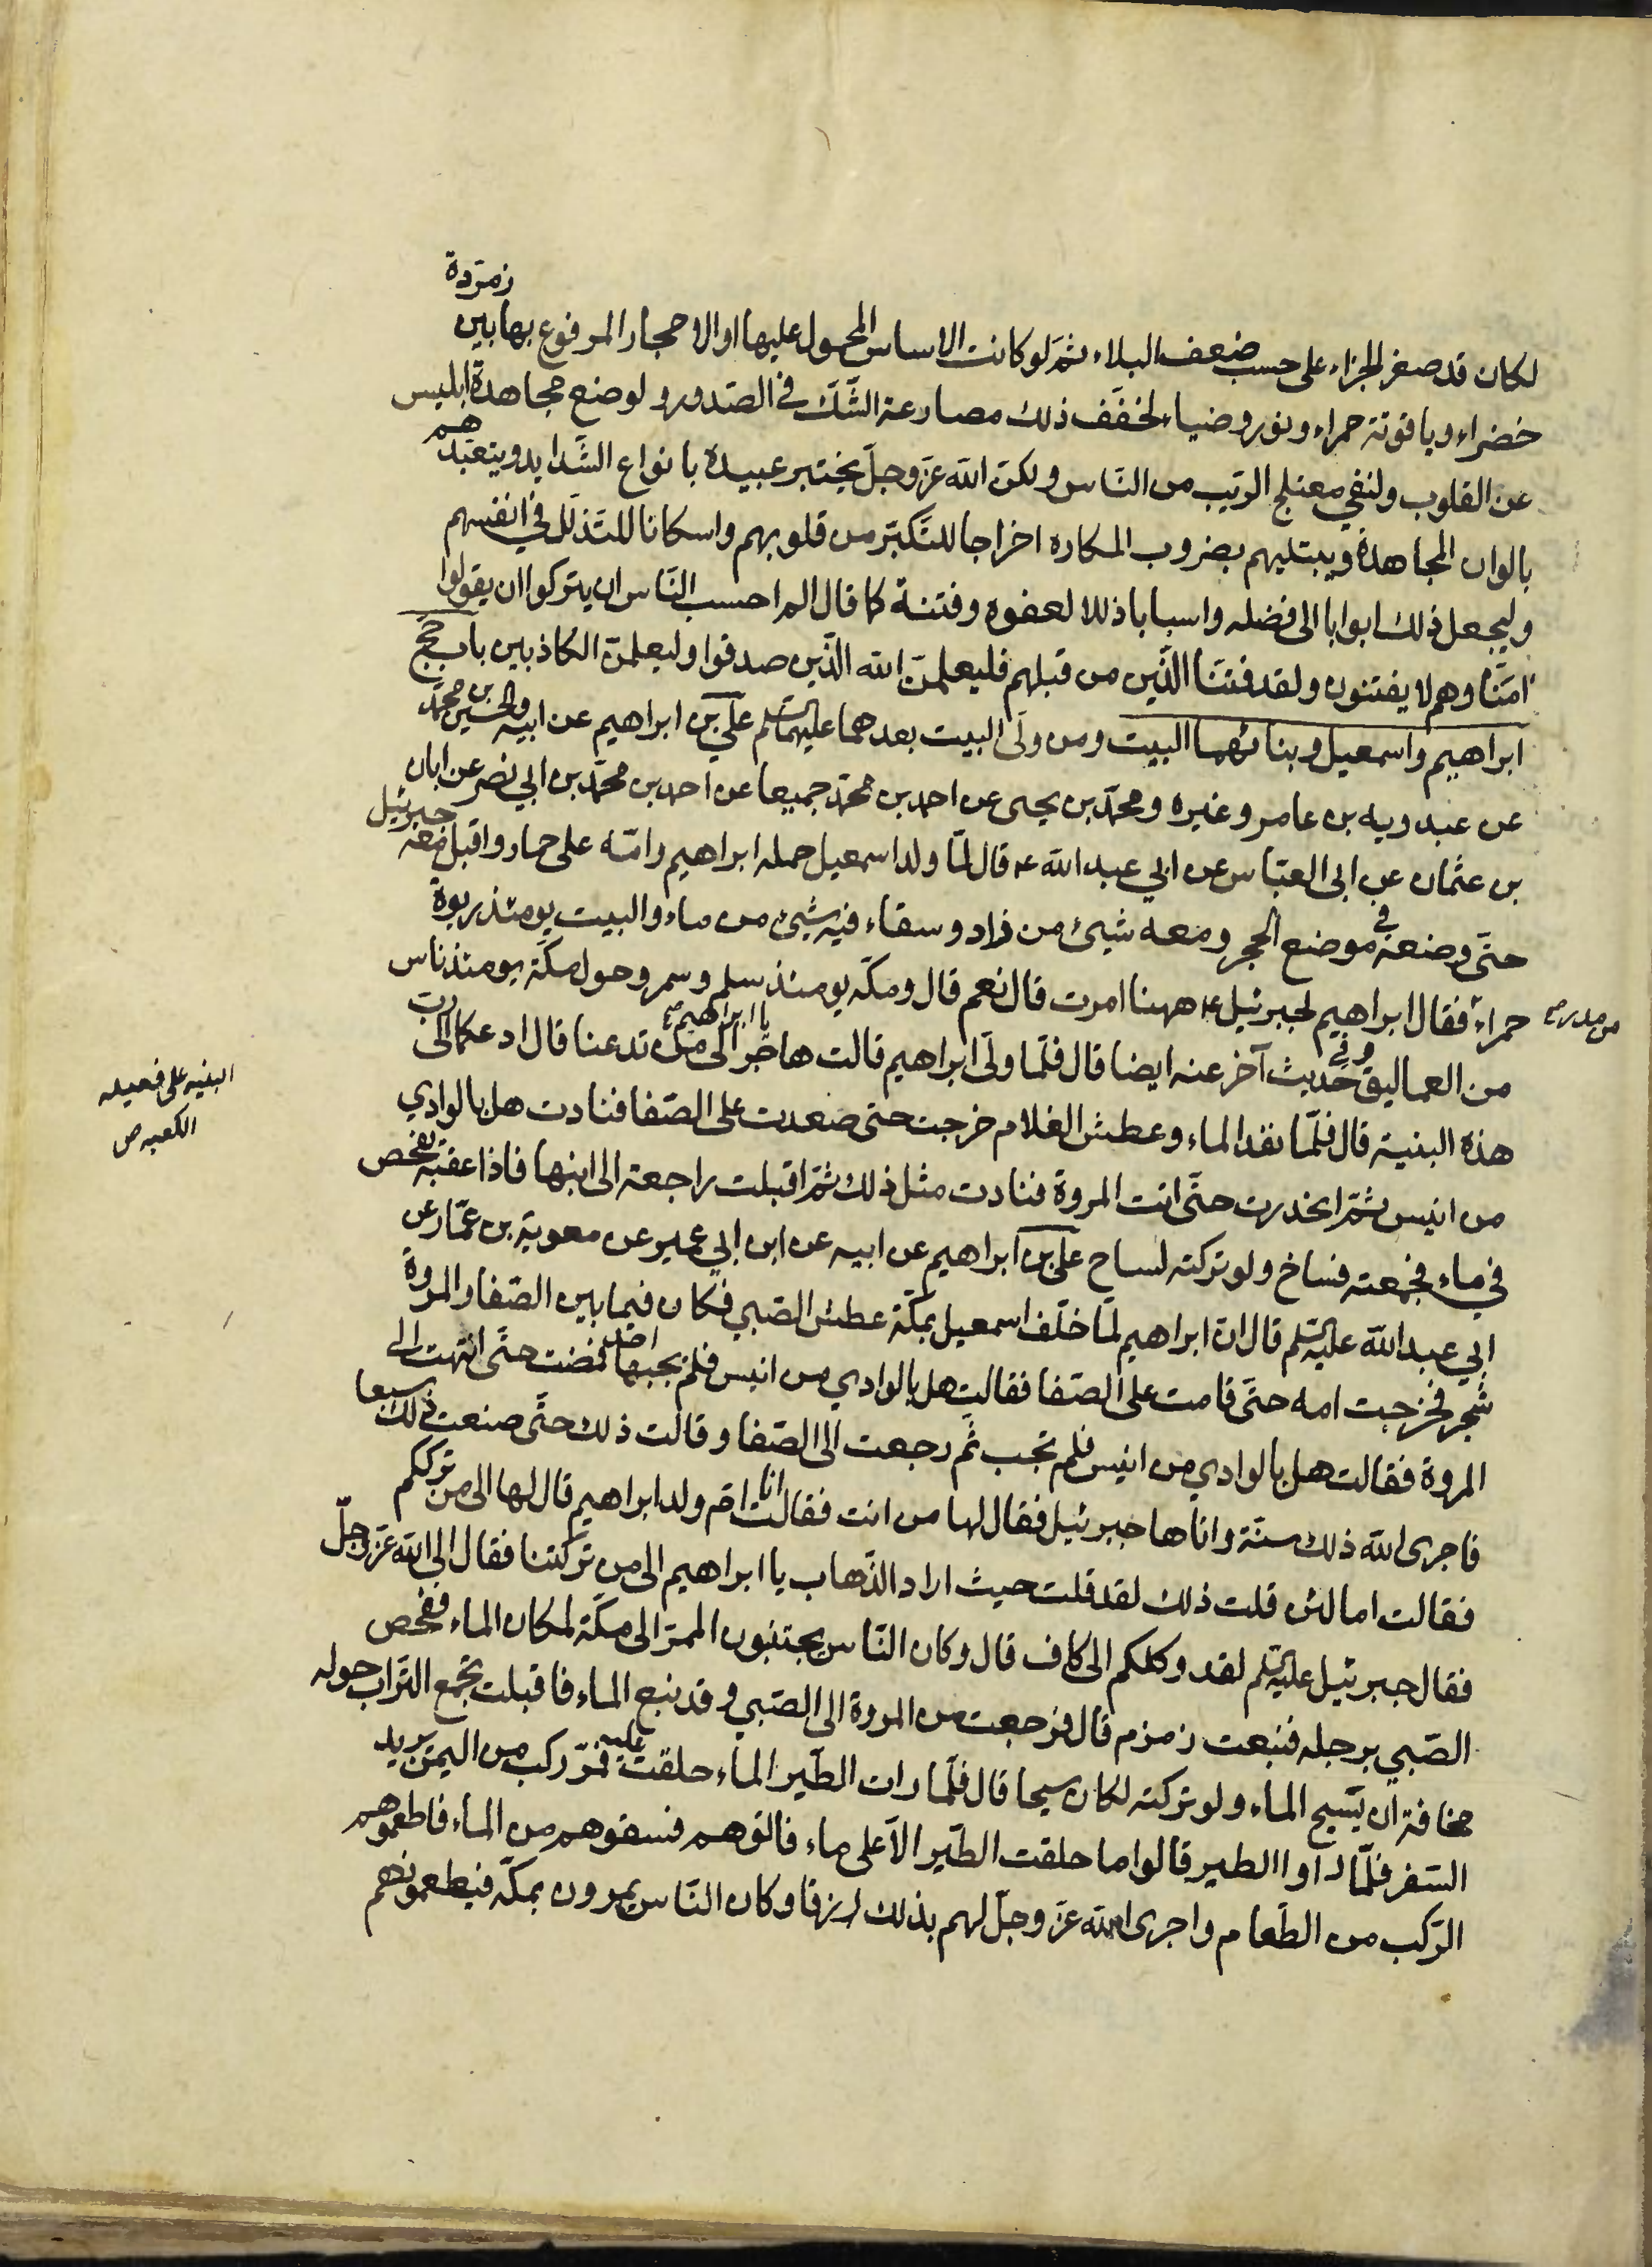 لكان قد صغر الجزاء على حسب ضعف البلاء ثم لو كانت الاساس المحمول عليها او الاحجار المرفوع بها بين زمرّدة
خضراء وياقوتة حمراء ونور وضياء لخفّف ذلك مصارعة الشّكّ في الصّدور ولوضع مجاهدة ابليس
عن القلوب ولنفي معتلج الرّيب من النّاس ولكنّ الله عزّ وجلّ يختبر عبيده بانواع الشّدايد ويتعبّدهم
بالوان المجاهدة ويبتليهم بضروب المكاره اخراجا للتّكبّر من قلوبهم واسكانا للتّذلّل في انفسهم
وليجعل ذلك ابوابا الى فضله واسبابا ذللا لعفوه وفتنة كما قال الم احسب النّاس ان يتركوا ان يقولوا
امنّا وهم لا يفتنون ولقد فتنّا الّذين من قبلهم فليعلمنّ الله الّذين صدقوا وليعلمنّ الكاذبين باب حجّ
ابراهيم واسمعيل وبنائهما البيت ومن ولّى البيت بعدهما عليهما السّلم عليّ بن ابراهيم عن ابيه والحسين بن محمّد
عن عبدويه بن عامر وغيره ومحمّد بن يحيى عن احمد بن محمّد جميعا عن احمد بن محمّد بن ابي نصر عن ابان
بن عثمان عن ابى العبّاس عن ابي عبد الله ع قال لمّا ولد اسمعيل حمله ابراهيم وامّه على حمار واقبل معه جبرئيل
حتّى وضعه في موضع الحجر ومعه شيئ من زاد وسقاء فيه شيئ من ماء والبيت يومئذ ربوة
حمراء فقال ابراهيم لجبرئيل ع ههنا امرت قال نعم قال ومكّه يومئذ سلم وسمر وحول مكّة يومئذ ناس
من مدر
من العماليق وفي حديث آخر عنه ايضا قال فلمّا ولّى ابراهيم قالت هاجر يا ابراهيم الى من تدعنا قال ادعكما الى ربّ
هذه البنية قال فلمّا نفد الماء وعطش الغلام خرجت حتى صعدت على الصّفا فنادت هل بالوادي
البنيه على فعيله
الكعبه ص
من انيس ثمّ انحدرت حتّى اتت المروة فنادت مثل ذلك ثمّ اقبلت راجعة الى ابنها فاذا عقبه تفحص
في ماء فجمعته فساخ ولو تركته لساح عليّ بن ابراهيم عن ابيه عن ابن ابي عمير عن معوية بن عمّار عن
ابي عبد الله عليه السّلم قال انّ ابراهيم لمّا خلّف اسمعيل بمكّة عطش الصّبي فكان فيما بين الصّفا والمروة
شجر فخرجت امه حتّى قامت على الصّفا فقالت هل بالوادي من انيس فلم يجبها احد فمضت حتّى انتهت الى
المروة فقالت هل بالوادي من انيس فلم تجب ثم رجعت الى الصّفا وقالت ذلك حتّى صنعت ذلك سبعا
فاجرى الله ذلك سنّة واتاها جبرئيل فقال لها من انت فقالت انا امّ ولد ابراهيم قال لها الى من ترككم
فقالت اما لئن قلت ذلك لقد قلت حيث اراد الذّهاب يا ابراهيم الى من تركتنا فقال الى الله عزّ وجلّ
فقال جبرئيل عليه السّلم لقد وكلكم الى كاف قال وكان النّاس يجتنبون الممرّ الى مكّة لمكان الماء ففحص
الصّبي برجله فنبعت زمزم قال فرجعت من المروة الى الصّبي وقد نبع الماء فاقبلت تجمع التّراب حوله
مخافة ان يسّيح الماء ولو تركته لكان سيحا قال فلمّا رات الطّير الماء حلقت عليه فمرّ ركب من اليمن يريد
السّفر فلمّا راوا الطير قالوا ما حلقت الطّير الّا على ماء فاتوهم فسقوهم من الماء فاطعموهم
الرّكب من الطّعام واجرى الله عزّ وجلّ لهم بذلك رزقا وكان النّاس يمرون بمكّة فيطعمونهم